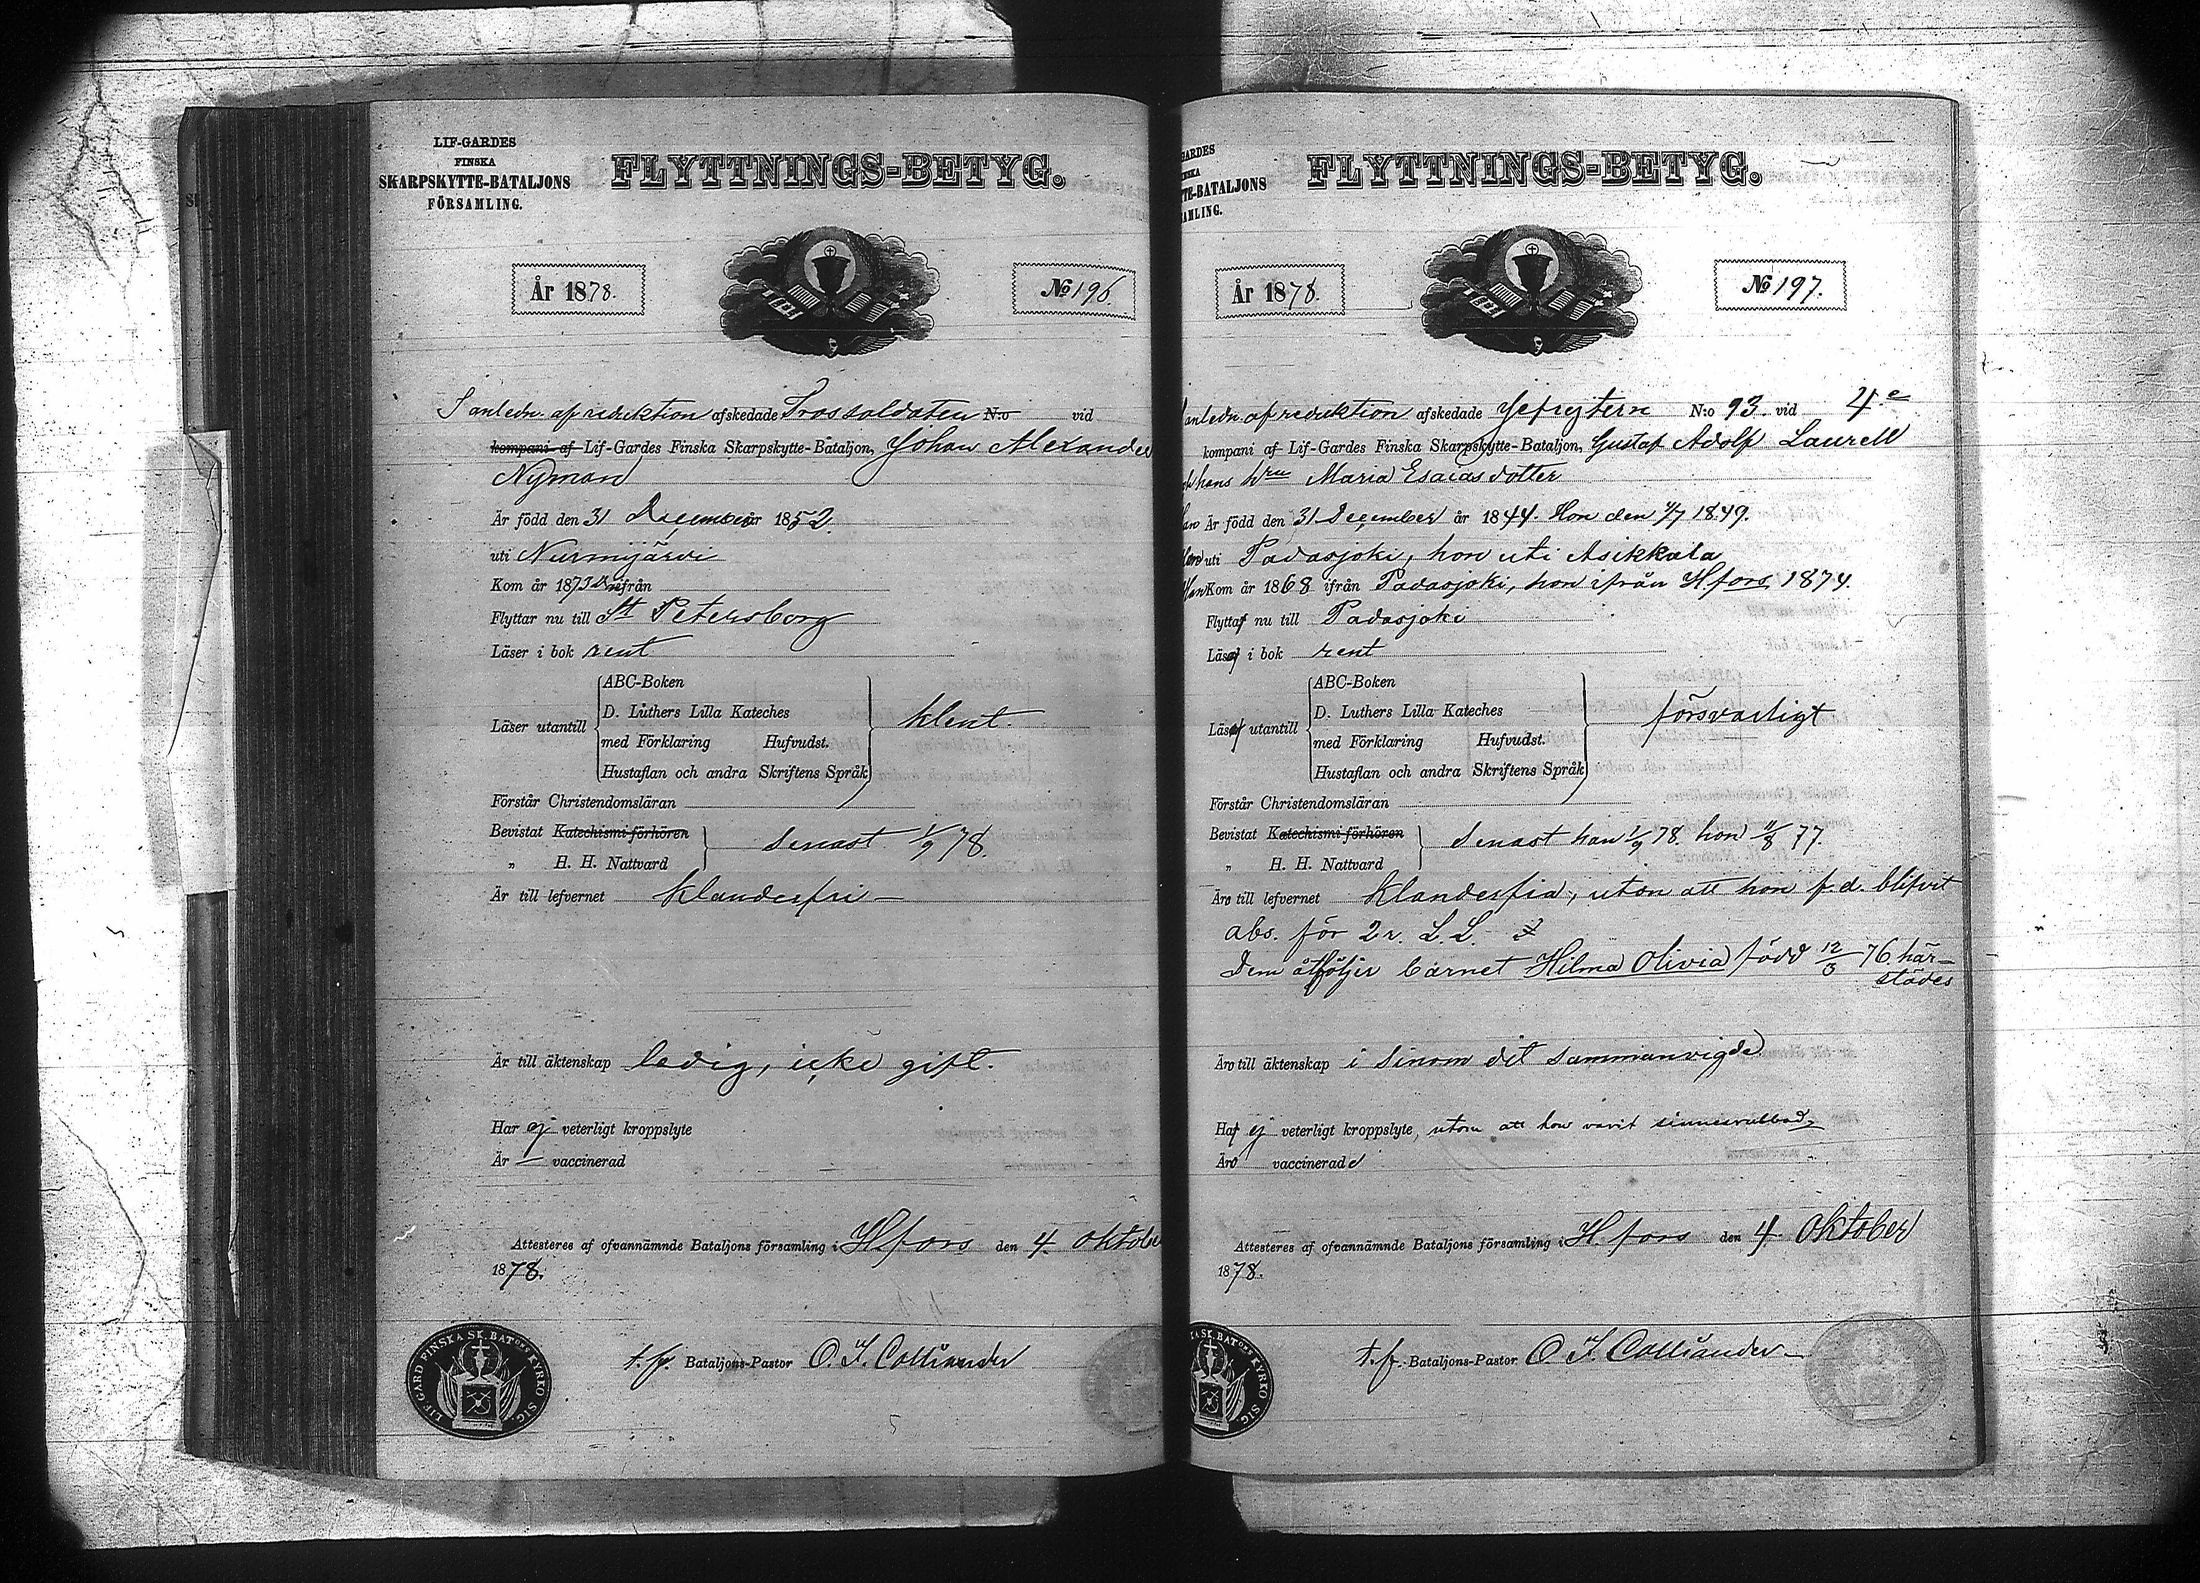 LIF-GARDES
FINSKA
SKARPSKYTTE-BATALJONS
FÖRSAMLING.
FLYTTNINGS-BETYG.
År 1878.
No 196.
I anledn. af reduktion afskedade Trossoldaten N:o vid
kompani af Lif-Gardes Finska Skarpskytte-Bataljon, Johan Alexander
Nyman
Är född den 31 December år 1852.
uti Nurmijärvi
Kom år 1873 ifrån
Flyttar nu till St Petersborg
Läser i bok rent
Läser utantill
ABC-Boken
D. Luthers Lilla Kateches
med Förklaring Hufvudst.
Hustaflan och andra Skriftens Språk
klent.
Förstår Christendomsläran
Bevistat Katechismi-förhören
„ H. H. Nattvard
Senast 1/9 78.
Är till lefvernet klanderfri
Är till äktenskap ledig, icke gift.
Har ej veterligt kroppslyte
Är — vaccinerad
Attesteres af ofvannämnde Bataljons församling i H.fors den 4. Oktober
1878.
t. f. Bataljons-Pastor O. I. Colliander
LIF. GARD FINSKA SK. BAT:NS KYRKO SIG.
GARDES
TE-BATALJONS
AMLING.
FLYTTNINGS-BETYG.
År 1878.
No 197.
anledn. af reduktion afskedade Jefrejtern N:o 93 vid 4e
kompani af Lif-Gardes Finska Skarpskytte-Bataljon, Gustaf Adolf Laurell
hans hru Maria Esaiasdotter
Är född den 31 December år 1844. Hon den 4/7 1849.
Han uti Padasjoki, hon uti Asikkala
Han Kom år 1868 ifrån Padasjoki, hon ifrån H.fors 1874.
Flytta nu till Padasjoki
Läsa i bok rent
Läsa utantill
ABC-Boken
D. Luthers Lilla Kateches
med Förklaring Hufvudst.
Hustaflan och andra Skriftens Språk
försvarligt
Förstår Christendomsläran
Bevistat Katechismi-förhören
„ H. H. Nattvard
Senast han 1/9 78. hon 11/8 77.
Äro till lefvernet klanderfria, utan att hon f. d. blifvit
abs. för 2 r. L. L.
Dem åtföljer barnet Hilma Olivia född 12/3 76 här-
städes
Äro till äktenskap i sinom det sammanvigde
Ha ej veterligt kroppslyte, utom att hon varit sinnesrubbad,
Äro vaccinerade
Attesteres af ofvannämnde Bataljons församling i H.fors den 4. Oktober
1878.
t. f. Bataljons-Pastor O. I. Colliander
KA SK. BAT:NS KYRKO SIG.